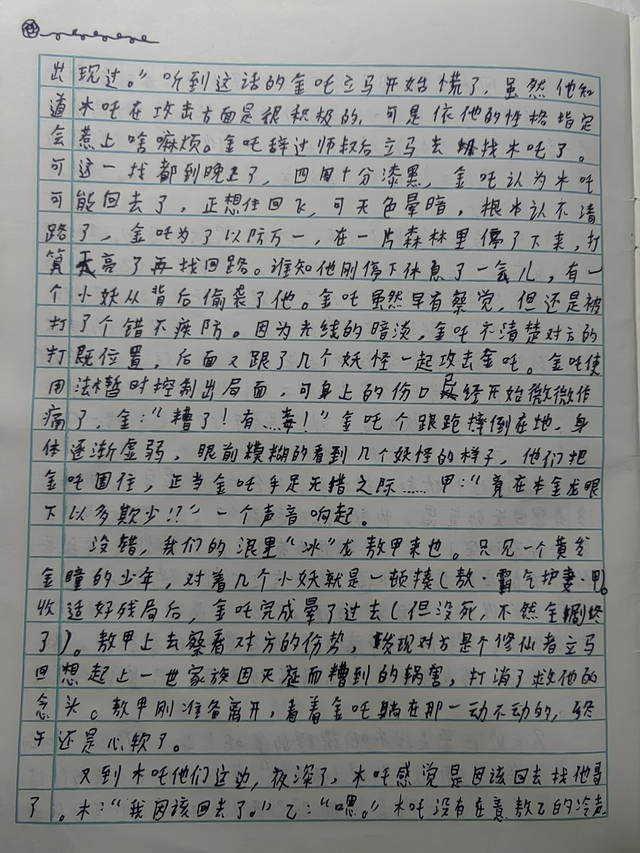 出现过。”听到这话的金吒立马开始慌了，虽然他知
道木吒在攻击方面是很积极的，可是依他的性格指定
会惹上啥嘛烦。金吒辞过师叔后立马去找木吒了。
可这一找都到晚上了，四周十分漆黑，金吒认为木吒
可能回去了，正想往回飞，可天色晕暗，根本认不清
路了，金吒为了以防万一，在一片森林里停了下来，打
算天亮了再找回路。谁知他刚停下休息了一会儿，有一
个小妖从背后偷袭了他。金吒虽然早有察觉，但还是被
打了个错不疾防。因为光线的暗淡，金吒不清楚对方的
打既位置，后面又跟了几个妖怪一起攻击金吒。金吒使
用法术暂时控制出局面，可身上的伤口已经开始微微作
痛了，金：“糟了！有毒！”金吒个踉跄摔倒在地，身
体逐渐虚弱，眼前模糊的看到几个妖怪的样子，他们把
金吒围住，正当金吒手足无错之际……甲：“竟在本金龙眼
下以多欺少!!?”一个声音响起。
没错，我们的混里“冰”龙敖甲来也。只见一个黄发
金瞳的少年，对着几个小妖就是一顿揍（敖·霸气护妻·甲）。
收适好残局后，金吒完成晕了过去（但没死，不然全剧终
了）。敖甲上去察看对方的伤势，发现对方是个修仙者立马
回想起上一世家族因天庭而糟到的祸害，打消了救他的
念头。敖甲刚准备离开，看着金吒躺在那一动不动的，终
于还是心软了。
又到木吒他们这边，夜深了，木吒感觉是因该回去找他哥
了。木：“我因该回去了。”乙：“嗯。”木吒没有在意敖乙的冷声